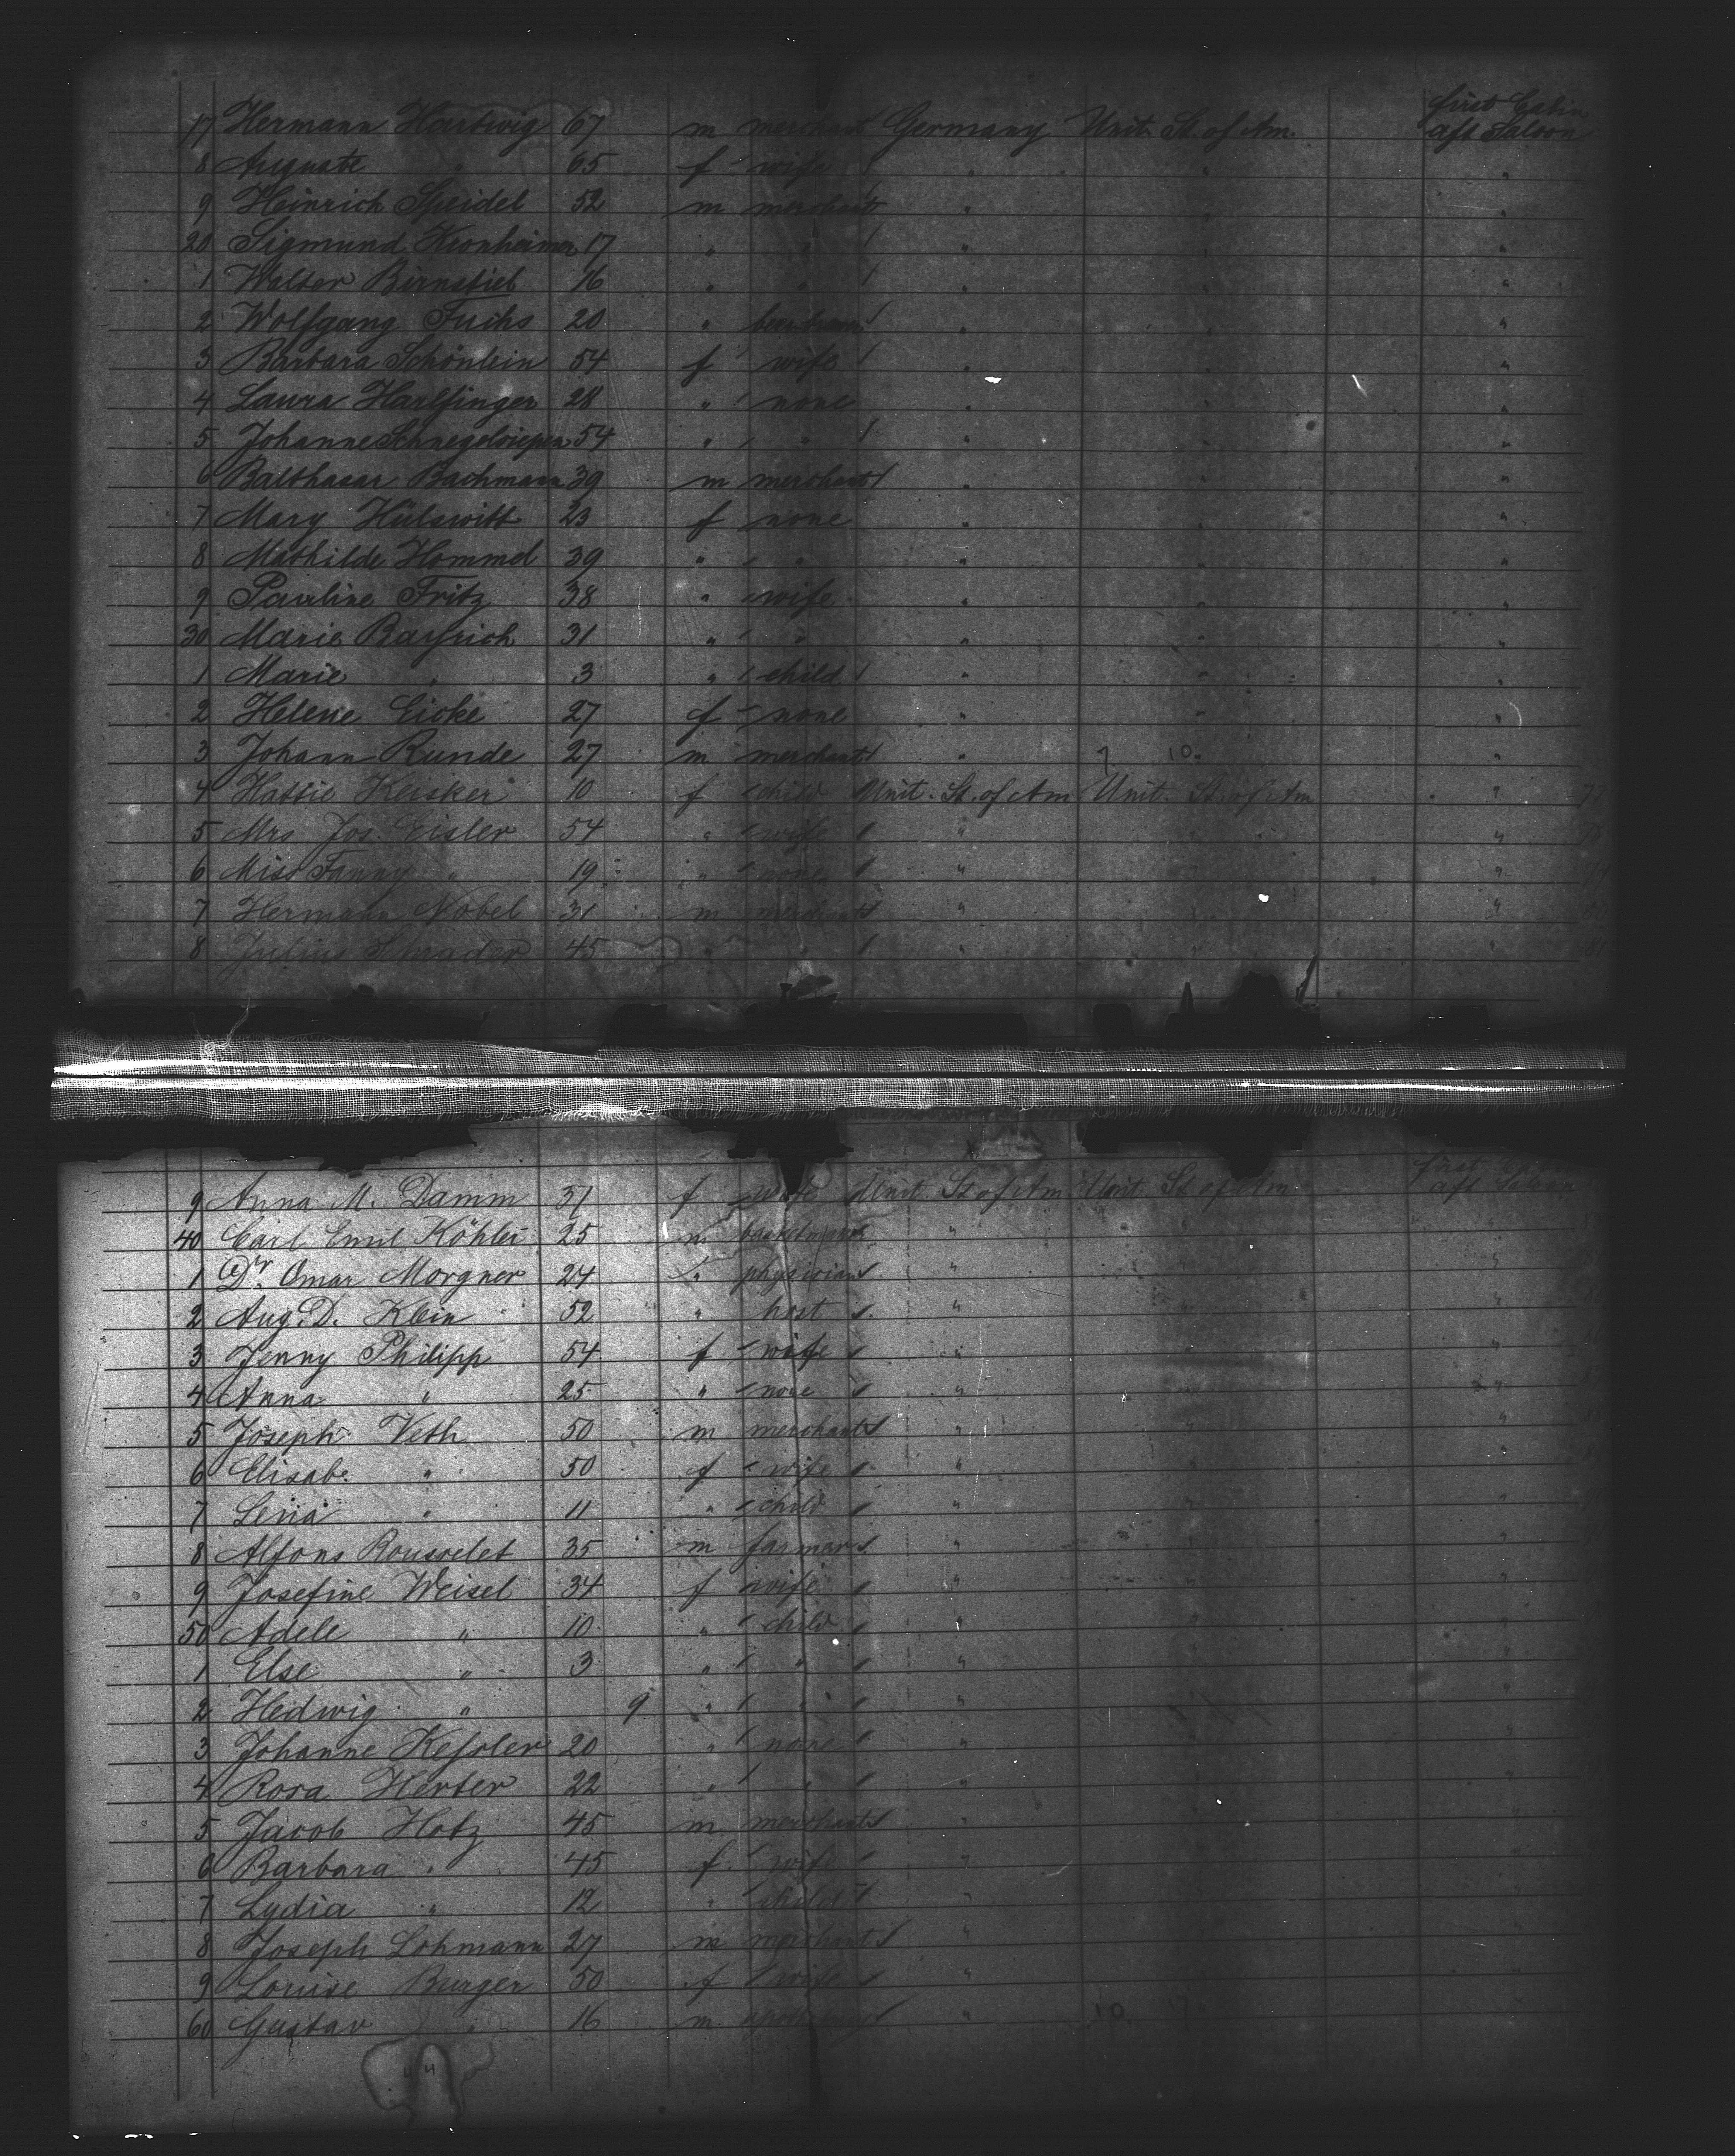 first Cabin
17 Hermann Hartwig 67 m merchant Germany Unit. St. of Am. aft Saloon
8 Auguste " 65 f wife " " "
9 Heinrich Speidel 52 m merchant " " "
20 Sigmund Kronheimer 17 " " " " "
1 Walter Birnstiel 16 " " " " "
2 Wolfgang Fuchs 20 " " " "
3 Barbara Schönlein 54 f wife " " "
4 Laura Harlfinger 28 " none " " "
5 Johanne 54 " " " " "
6 Balthasar Bachmann 39 m merchant " " "
7 Mary Hülswitt 23 f none " " "
8 Mathilde Hommel 39 " " " " "
9 Pauline Fritz 38 " wife " " "
30 Marie 31 " " " " "
1 Marie " 3 " child " " "
2 Helene Eicke 27 f none " " "
3 Johann Runde 27 m merchant " 10 "
4 Hattie Keisker 10 f child Unit. St. of Am Unit. St. of Am "
5 Mrs Jos. Eisler 54 " wife " " "
6 Miss Fanny " 19 " none " "
7 Hermann Nobel 31 m merchant " "
8 Julius Schrader 45 " " " "
first
9 Anna M. Damm 51 f wife Unit. St of Am Unit St of Am aft Saloon
40 Carl Emil Köhler 25 m " "
1 Dr. Omar Morgner 24 " physician " "
2 Aug. D. Klein 52 " host " "
3 Jenny Philipp 54 f wife " "
4 Anna " 25 " none " "
5 Joseph Veth 50 m merchant " "
6 Elisab. " 50 f wife " "
7 Lena " 11 " child " "
8 Alfons Rousselet 35 m farmer " "
9 Josefine Weisel 34 f wife " "
50 Adele " 10 " child " "
1 Else " 3 " " " "
2 Hedwig " 9 " " " "
3 Johanne Kessler 20 " none " "
4 Rosa Herter 22 " " " "
5 Jacob Hotz 45 m merchant " "
6 Barbara " 45 f wife " "
7 Lydia " 12 " child " "
8 Joseph Lohmann 27 m merchant " "
9 Louise Burger 50 f wife " "
60 Gustav " 16 m " 10